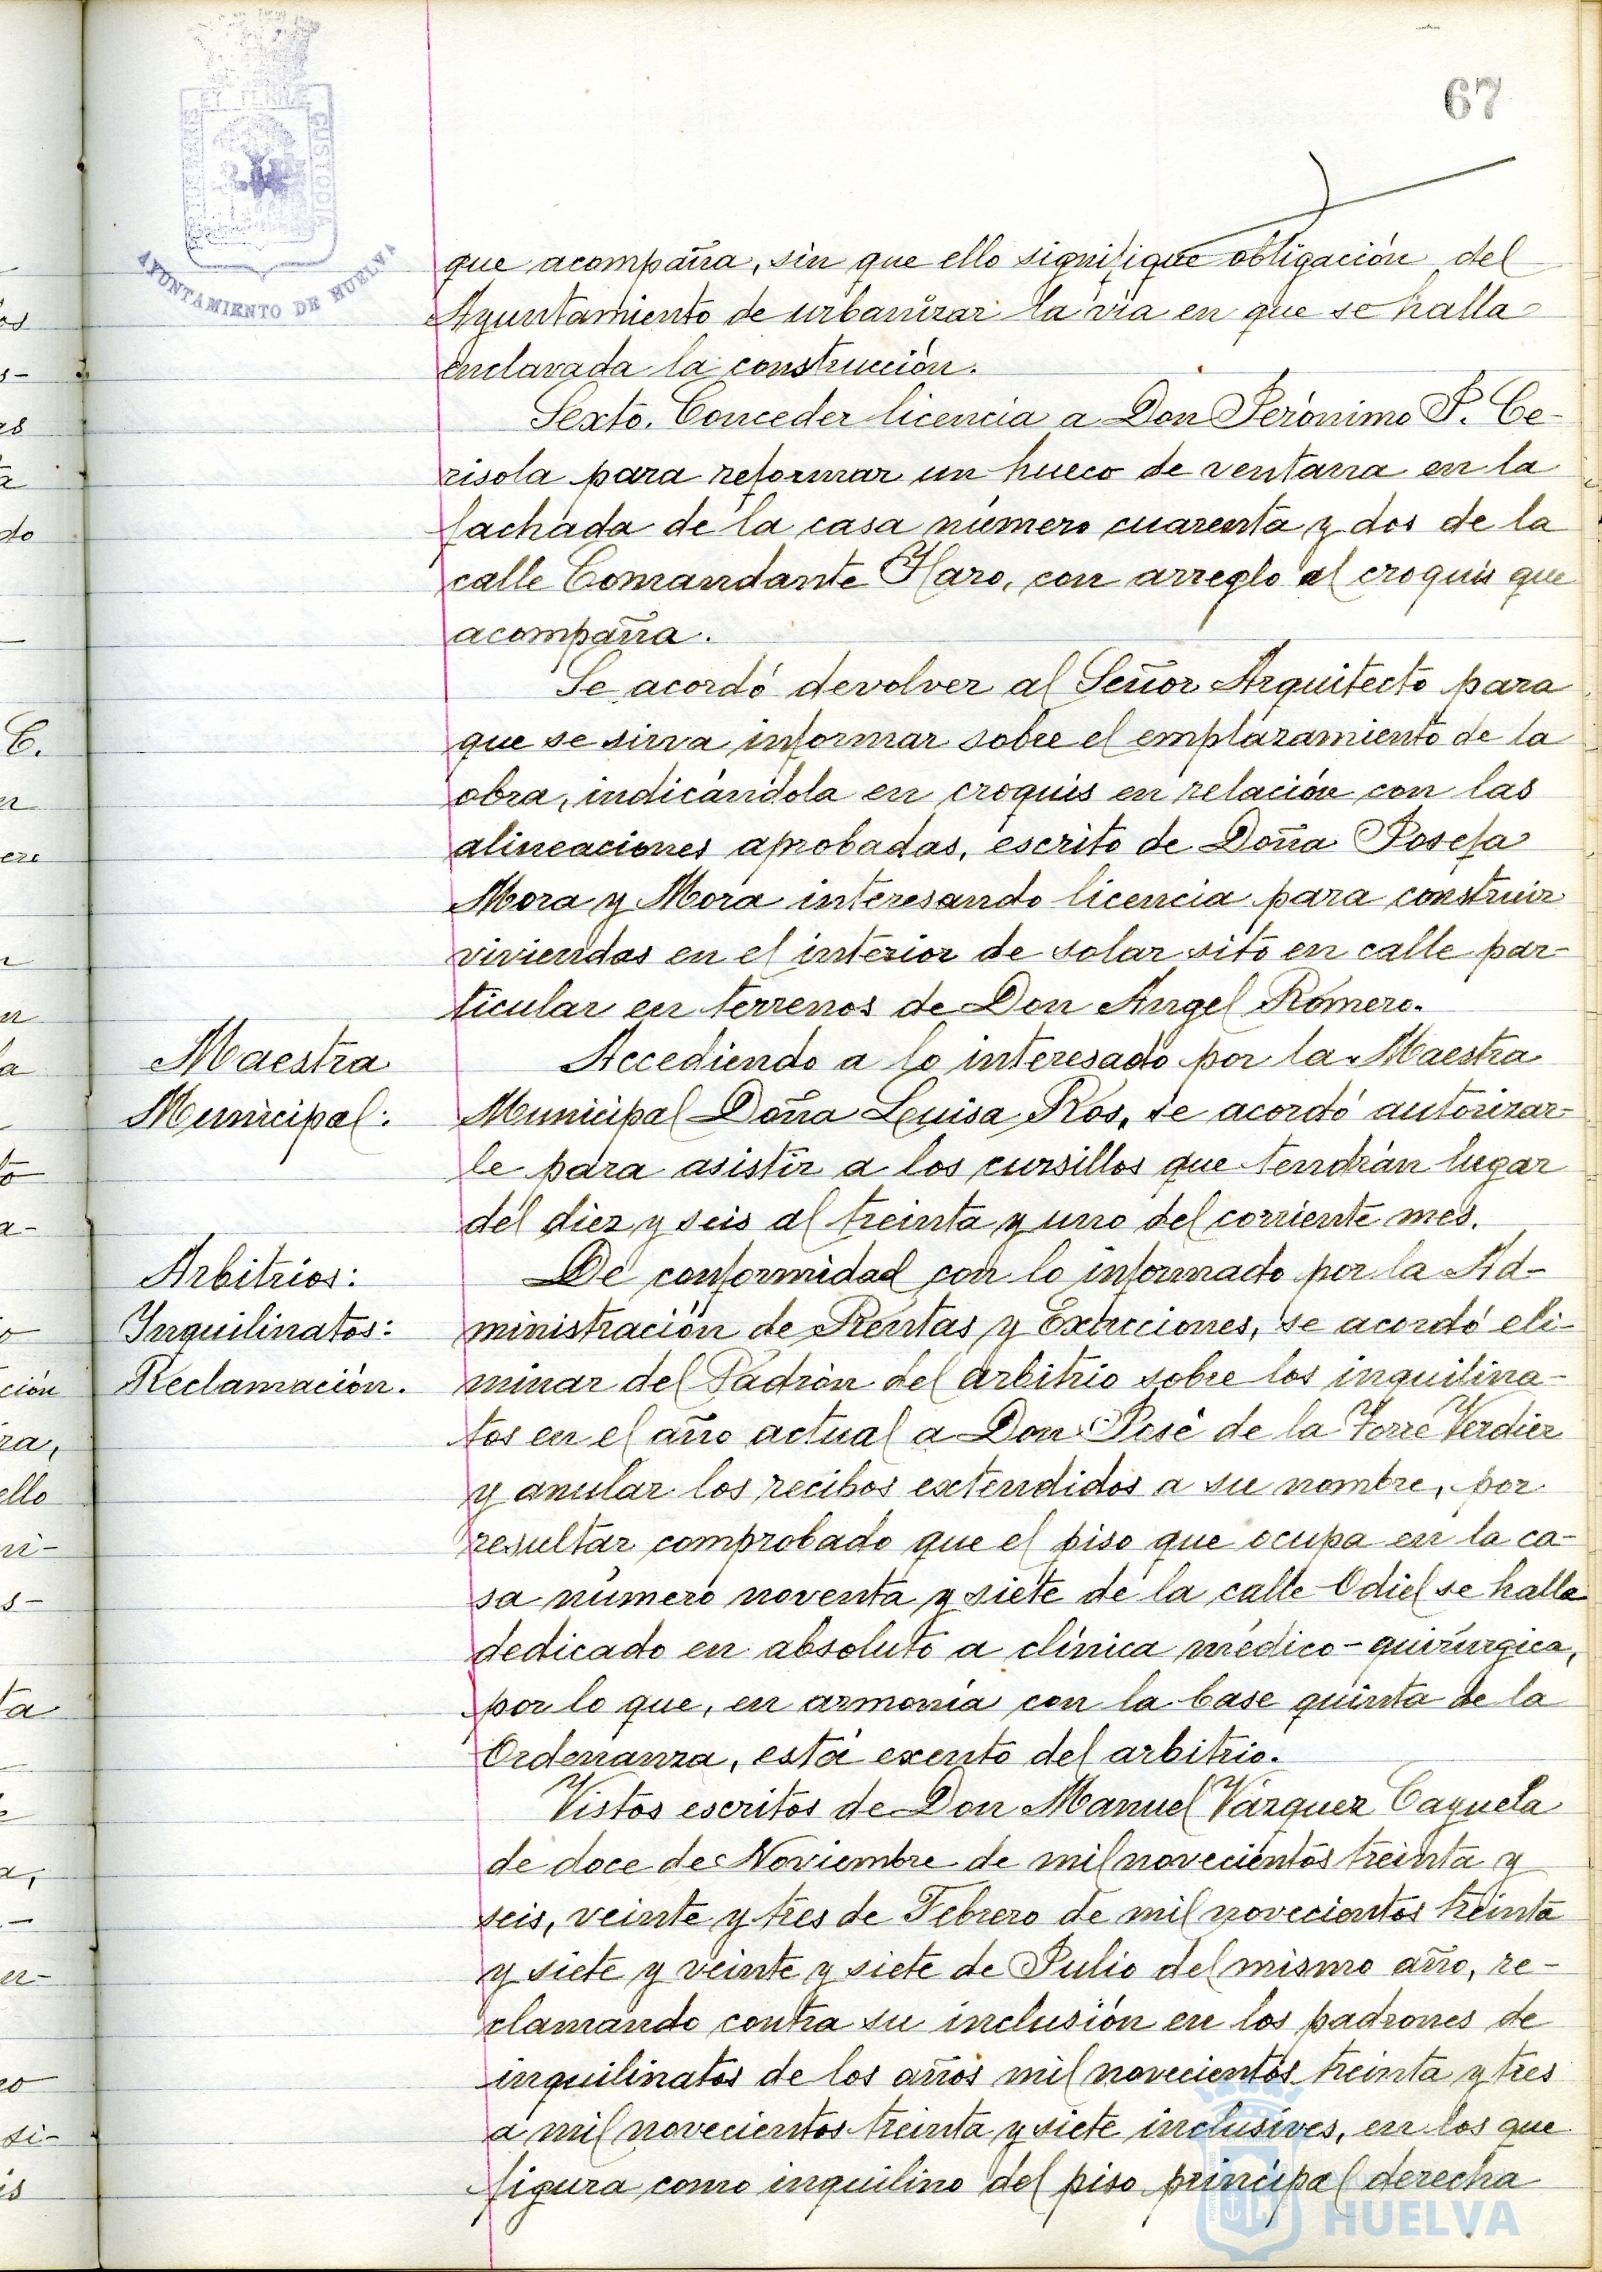 67
PORTUS MARIS ET TERRAE CUSTODIA
AYUNTAMIENTO DE HUELVA
que acompaña, sin que ello signifique obligación del
Ayuntamiento de urbanizar la vía en que se halla
enclavada la construcción.
Sexto. Conceder licencia a Don Jerónimo P. Ce-
risola para reformar un hueco de ventana en la
fachada de la casa número cuarenta y dos de la
calle Comandante Haro, con arreglo al croquis que
acompaña.
Se acordó devolver al Señor Arquitecto para
que se sirva informar sobre el emplazamiento de la
obra, indicándola en croquis en relación con las
alineaciones aprobadas, escrito de Doña Josefa
Mora y Mora interesando licencia para construir
viviendas en el interior de solar sito en calle par-
ticular en terrenos de Don Angel Romero.
Maestra
Municipal:
Accediendo a lo interesado por la Maestra
Municipal Doña Luisa Ros, se acordó autorizar-
le para asistir a los cursillos que tendrán lugar
del diez y seis al treinta y uno del corriente mes.
Arbitrios:
Inquilinatos:
Reclamación.
De conformidad con lo informado por la Ad-
ministración de Rentas y Exacciones, se acordó eli-
minar del Padrón del arbitrio sobre los inquilina-
tos en el año actual a Don José de la Torre Verdier
y anular los recibos extendidos a su nombre, por
resultar comprobado que el piso que ocupa en la ca-
sa número noventa y siete de la calle Odiel se halla
dedicado en absoluto a clínica médico-quirúrgica,
por lo que, en armonía con la base quinta de la
Ordenanza, está exento del arbitrio.
Vistos escritos de Don Manuel Vázquez Cayuela
de doce de Noviembre de mil novecientos treinta y
seis, veinte y tres de Febrero de mil novecientos treinta
y siete y veinte y siete de Julio del mismo año, re-
clamando contra su inclusión en los padrones de
inquilinatos de los años mil novecientos treinta y tres
a mil novecientos treinta y siete inclusives, en los que
figura como inquilino del piso principal derecha
HUELVA